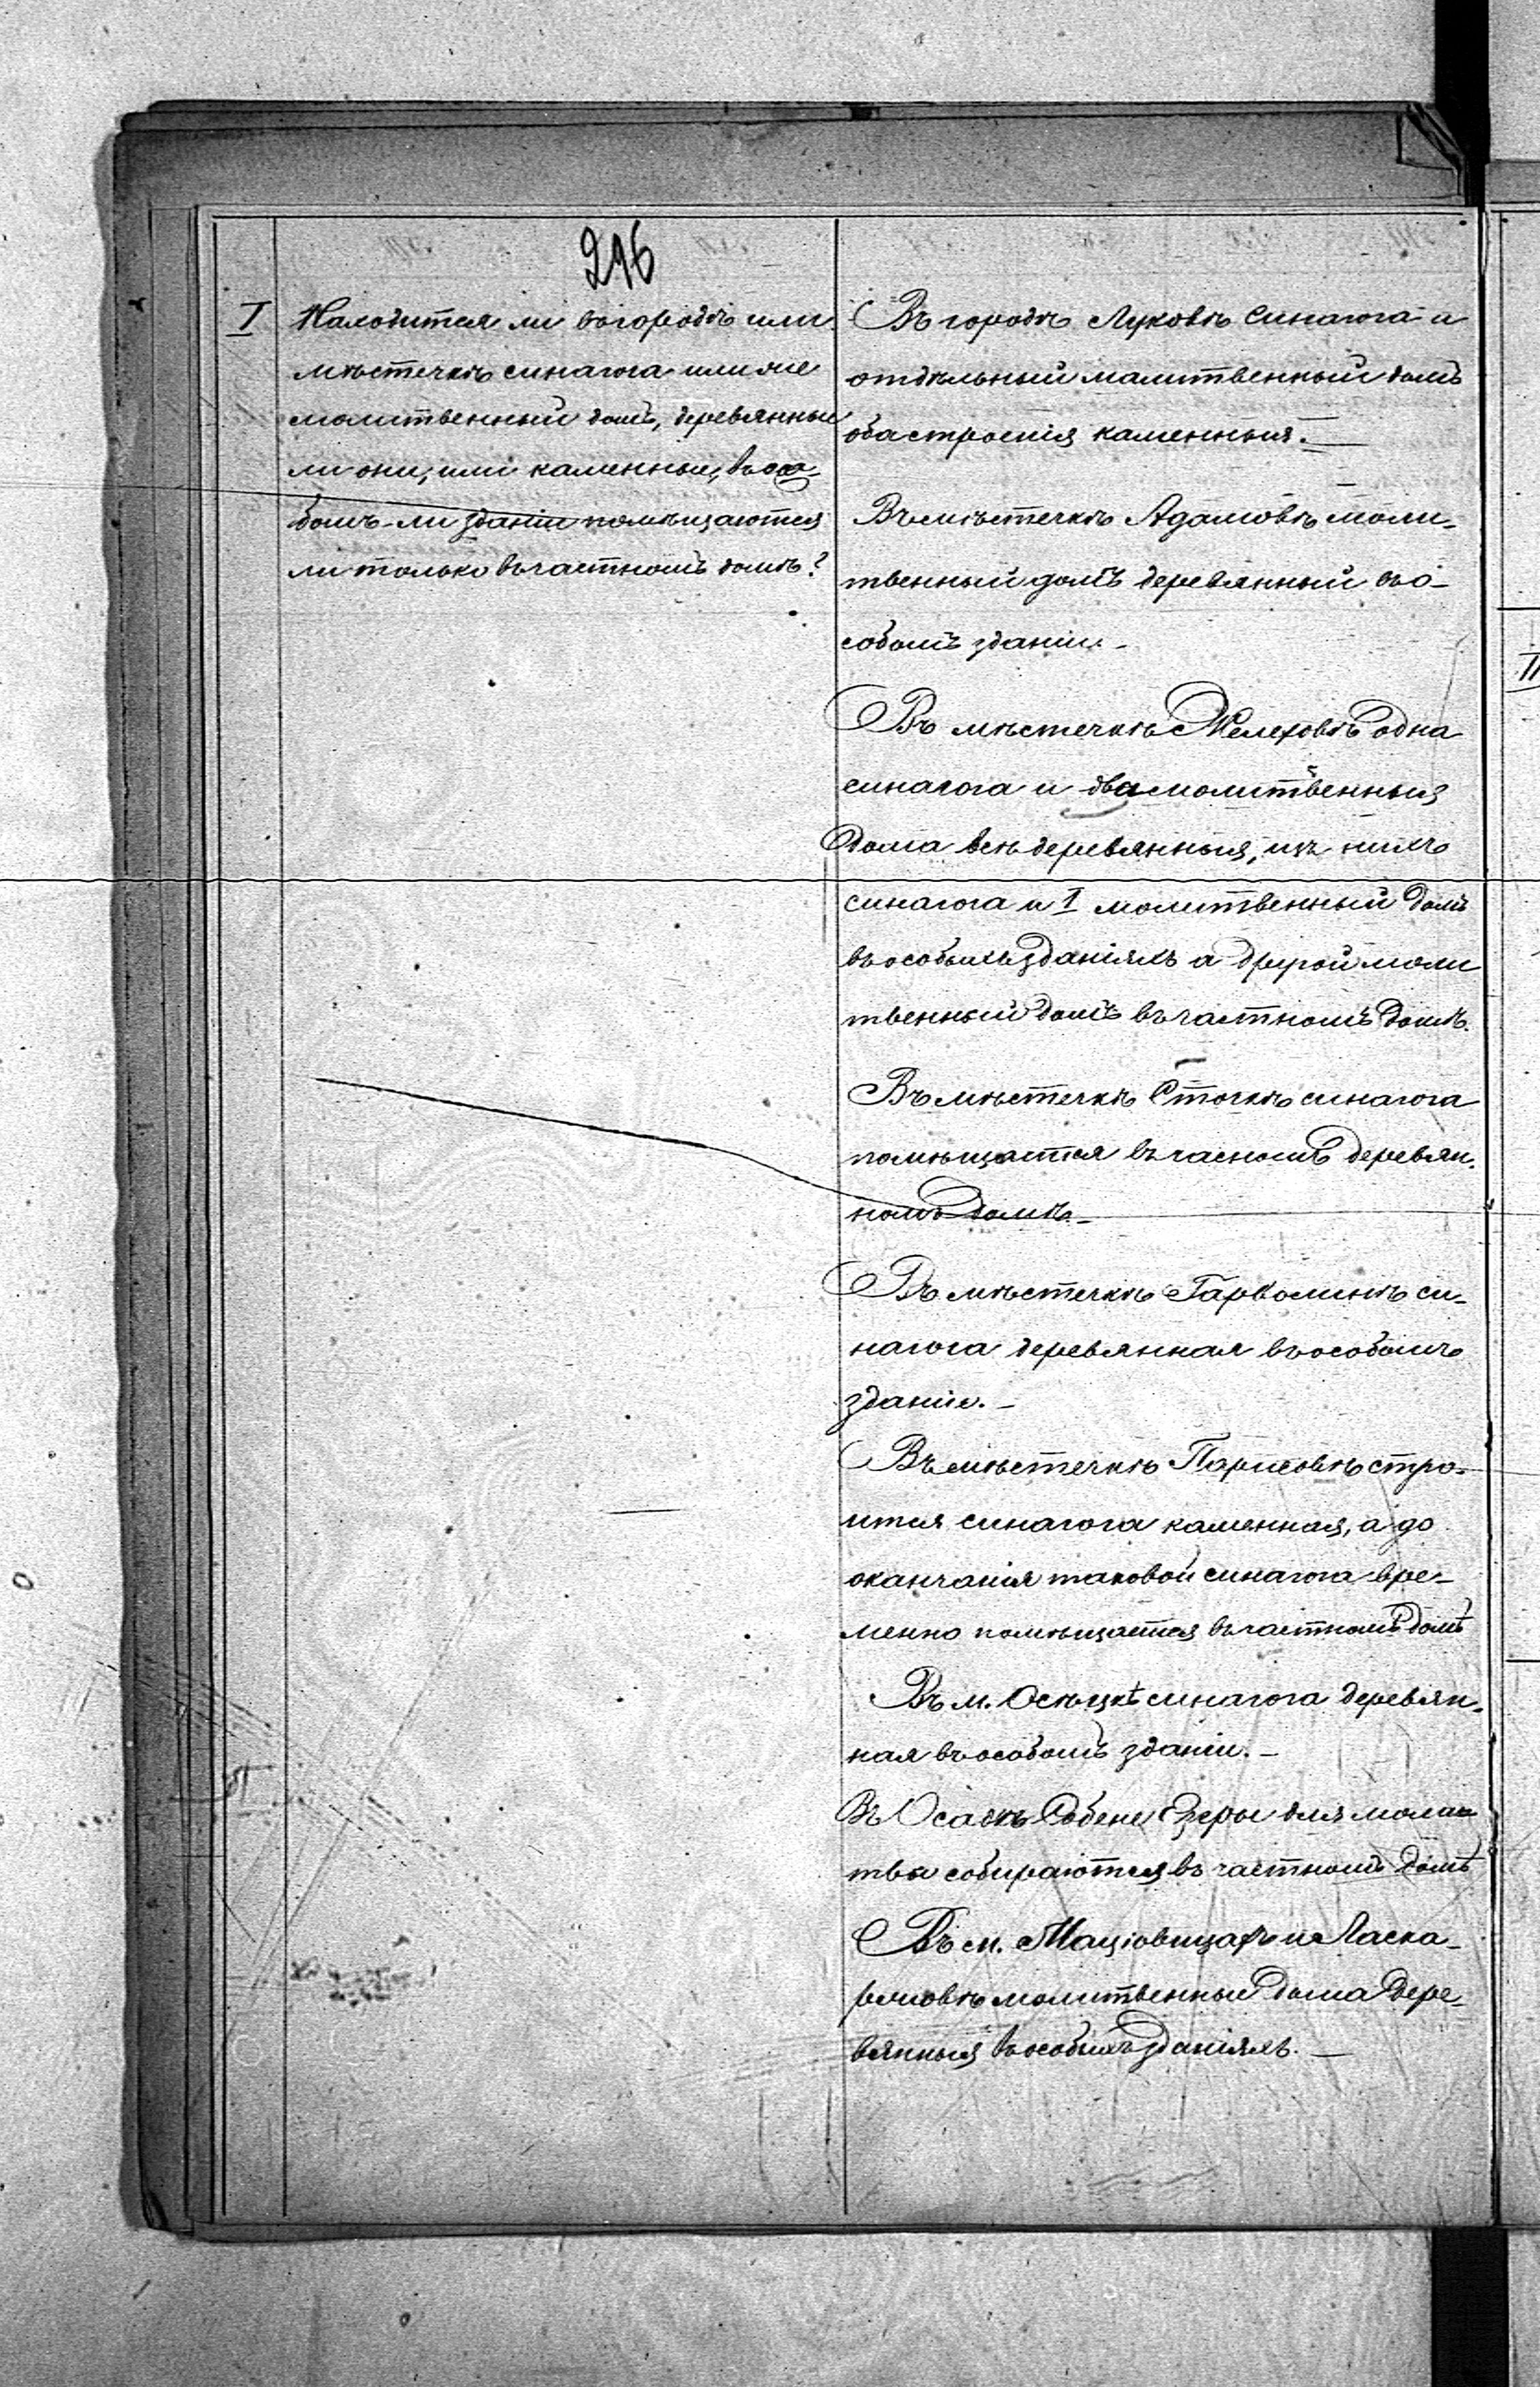 296
I
Находится ли въ городѣ или
мѣстечкѣ синагога или же
молитвенный домъ, деревянные
ли они, или каменные, въ осо-
бомъ-ли зданіи помѣщаются
ли только въ частномъ домѣ?
Въ городѣ Луковѣ синагога и
отдѣльный малитвенный домъ
оба строенія каменныя.—
Въ мѣстечкѣ Адамовѣ моли-
твенный домъ деревянный въ о-
собомъ зданіи.-
Въ мѣстечкѣ Желеховѣ одна
синагога и два молитвенныя
дома всѣ деревянныя, изъ нихъ
синагога и 1 молитвенный домъ
въ особыхъ зданіяхъ а другой моли
твенный домъ въ частномъ домѣ.
Въ мѣстечкѣ Сточкѣ синагога
помѣщается въ часномъ деревян-
номъ домѣ.-
Въ мѣстечкѣ Гарволинѣ си-
нагога деревянная въ особомъ
зданіи.-
Въ мѣстечкѣ Парисовѣ стро-
ится синагога каменная, а до
оканчанія таковой синагога вре-
менно помѣщается въ частномъ домѣ
Въ м. Осѣцкѣ синагога деревян-
ная въ особомъ зданіи.-
Въ Осадѣ Собене Езеры для моли-
твы собираются въ частномъ домѣ
Въ м. Маціовицахъ и Ласка-
ржовѣ молитвенные дома дере-
вянныя въ особыхъ зданіяхъ.—
II